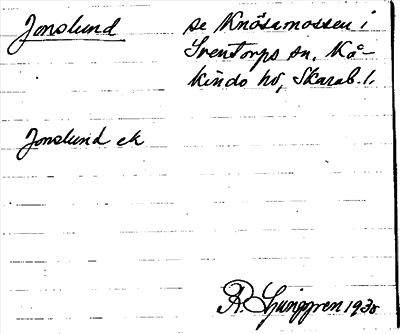 Jonslund se Knösamossen i
Sventorps sn, Kå-
kinds hd, Skarab. l.
Jonslund ek
R. Ljunggren 1930